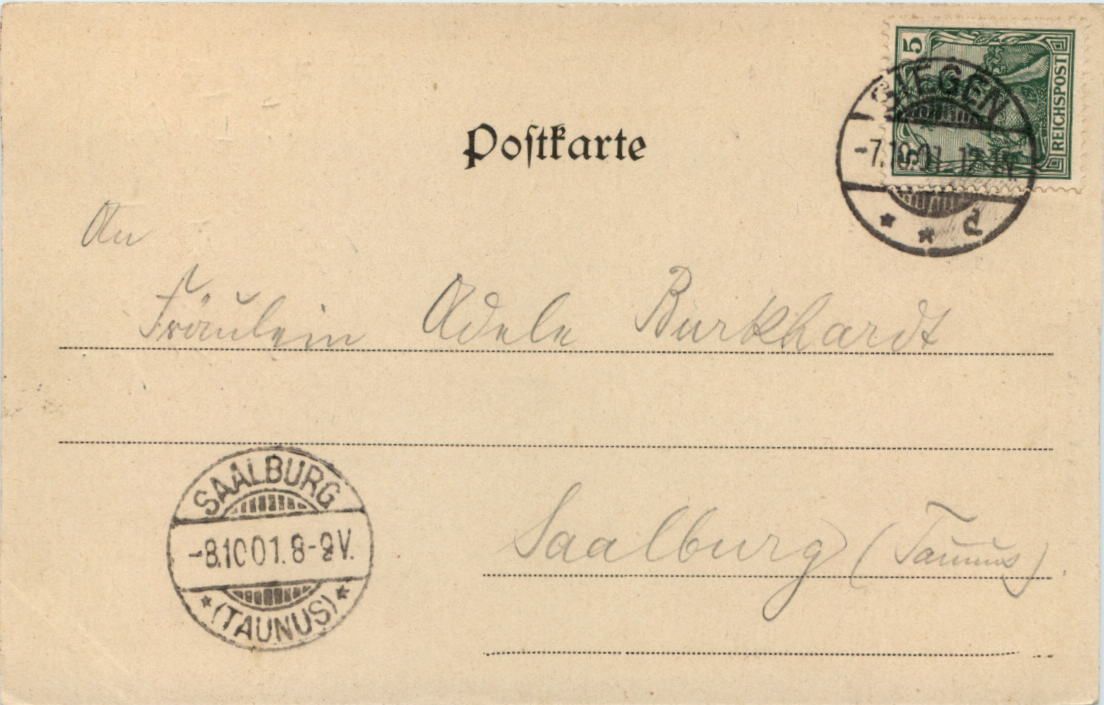 5
REICHSPOST
SIEGEN
-7.10.01. 12-1V.
* * d
Postkarte
An
Fräulein Adele Burkhardt
Saalburg (Taunus)
SAALBURG
-8.10 01. 8-9V.
*(TAUNUS)*